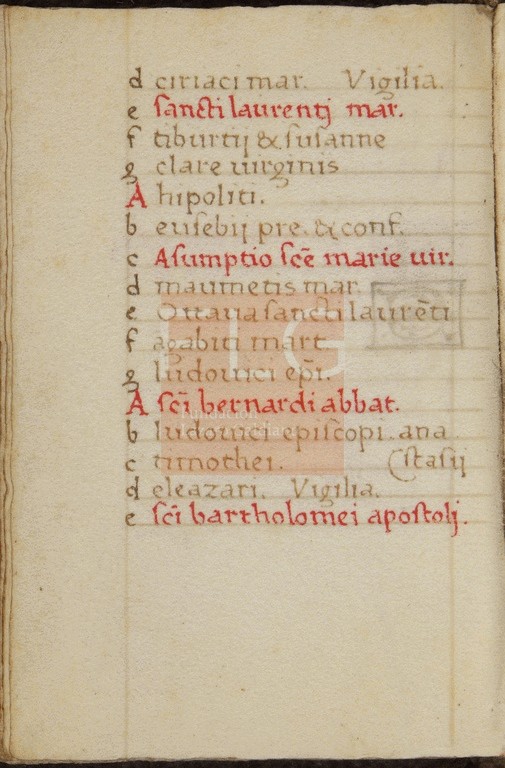 d ciriaci mar. Vigilia.
e sancti laurentj mar.
f tiburtij & susanne
g clare uirginis
A hipoliti.
b eusebij pre. & conf.
c Asumptio scē marie uir.
d maumetis mar
e Ottaua sancti laurēti
f agabiti mart.
g ludouici epī.
A scī bernardi abbat.
b ludouici episcopi. ana
c timothei. (stasij
d eleazari. Vigilia.
e scī bartholomei apostolj.
Fundación